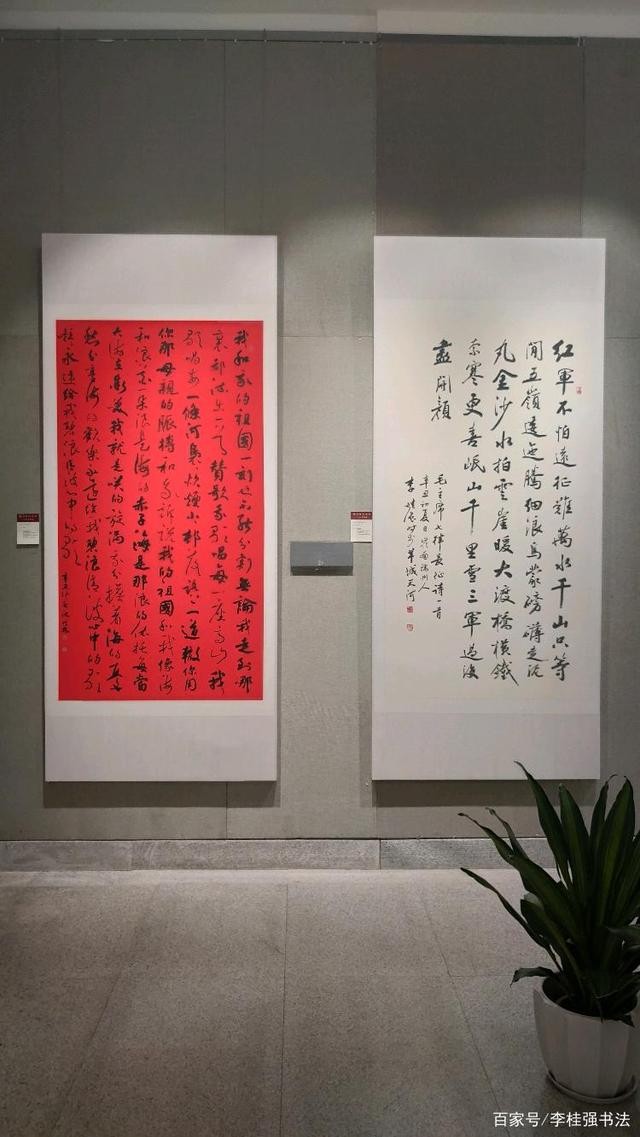 我和我的祖国一刻也不能分割无论我走到那
里都流出一首赞歌我歌唱每一座高山我
歌唱每一条河袅袅炊烟小小村落路上一道辙你用
你那母亲的脉搏和我诉说我的祖国和我像海
和浪花一朵浪是海的赤子海是那浪的依托每当
大海在微笑我就是笑的旋涡我分担着海的
愁分享海的歡乐永远给我碧浪清波心中的歌
永远给我碧浪清波心中的歌
紅軍不怕遠征難萬水千山只等
閒五嶺逶迤騰細浪烏蒙磅礴走泥
丸金沙水拍雲崖暖大渡橋橫鐵
索寒更喜岷山千里雪三軍過後
盡開顏
毛主席七律長征詩一首
辛丑初夏日
李桂强 羊城天河
百家号/李桂强书法